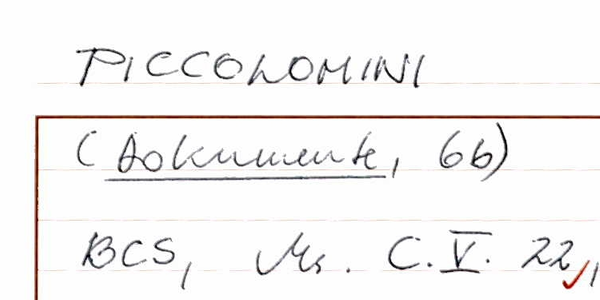 PICCOLOMINI
(Dokumente, 6b)
BCS, Ms. C.V. 22,